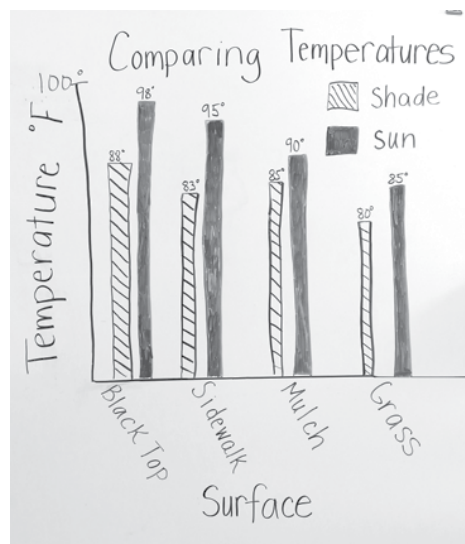 Comparing Temperatures
100°
Shade
Sun
Temperature °F
88°
98°
83°
95°
85°
90°
80°
85°
Black Top
Sidewalk
Mulch
Grass
Surface